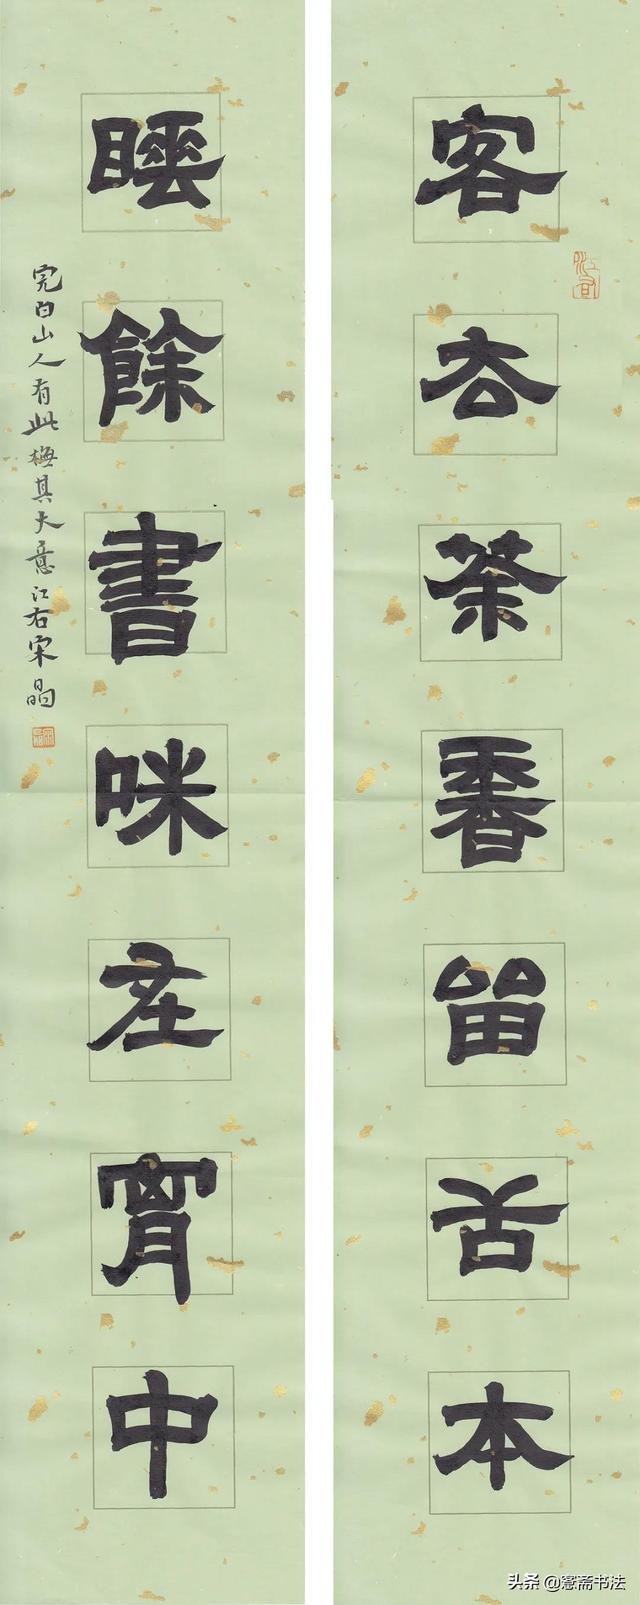 客去茶香留舌本
睡餘書味在胷中
完白山人有此橅其大意江右宋
头条 @愙斋书法